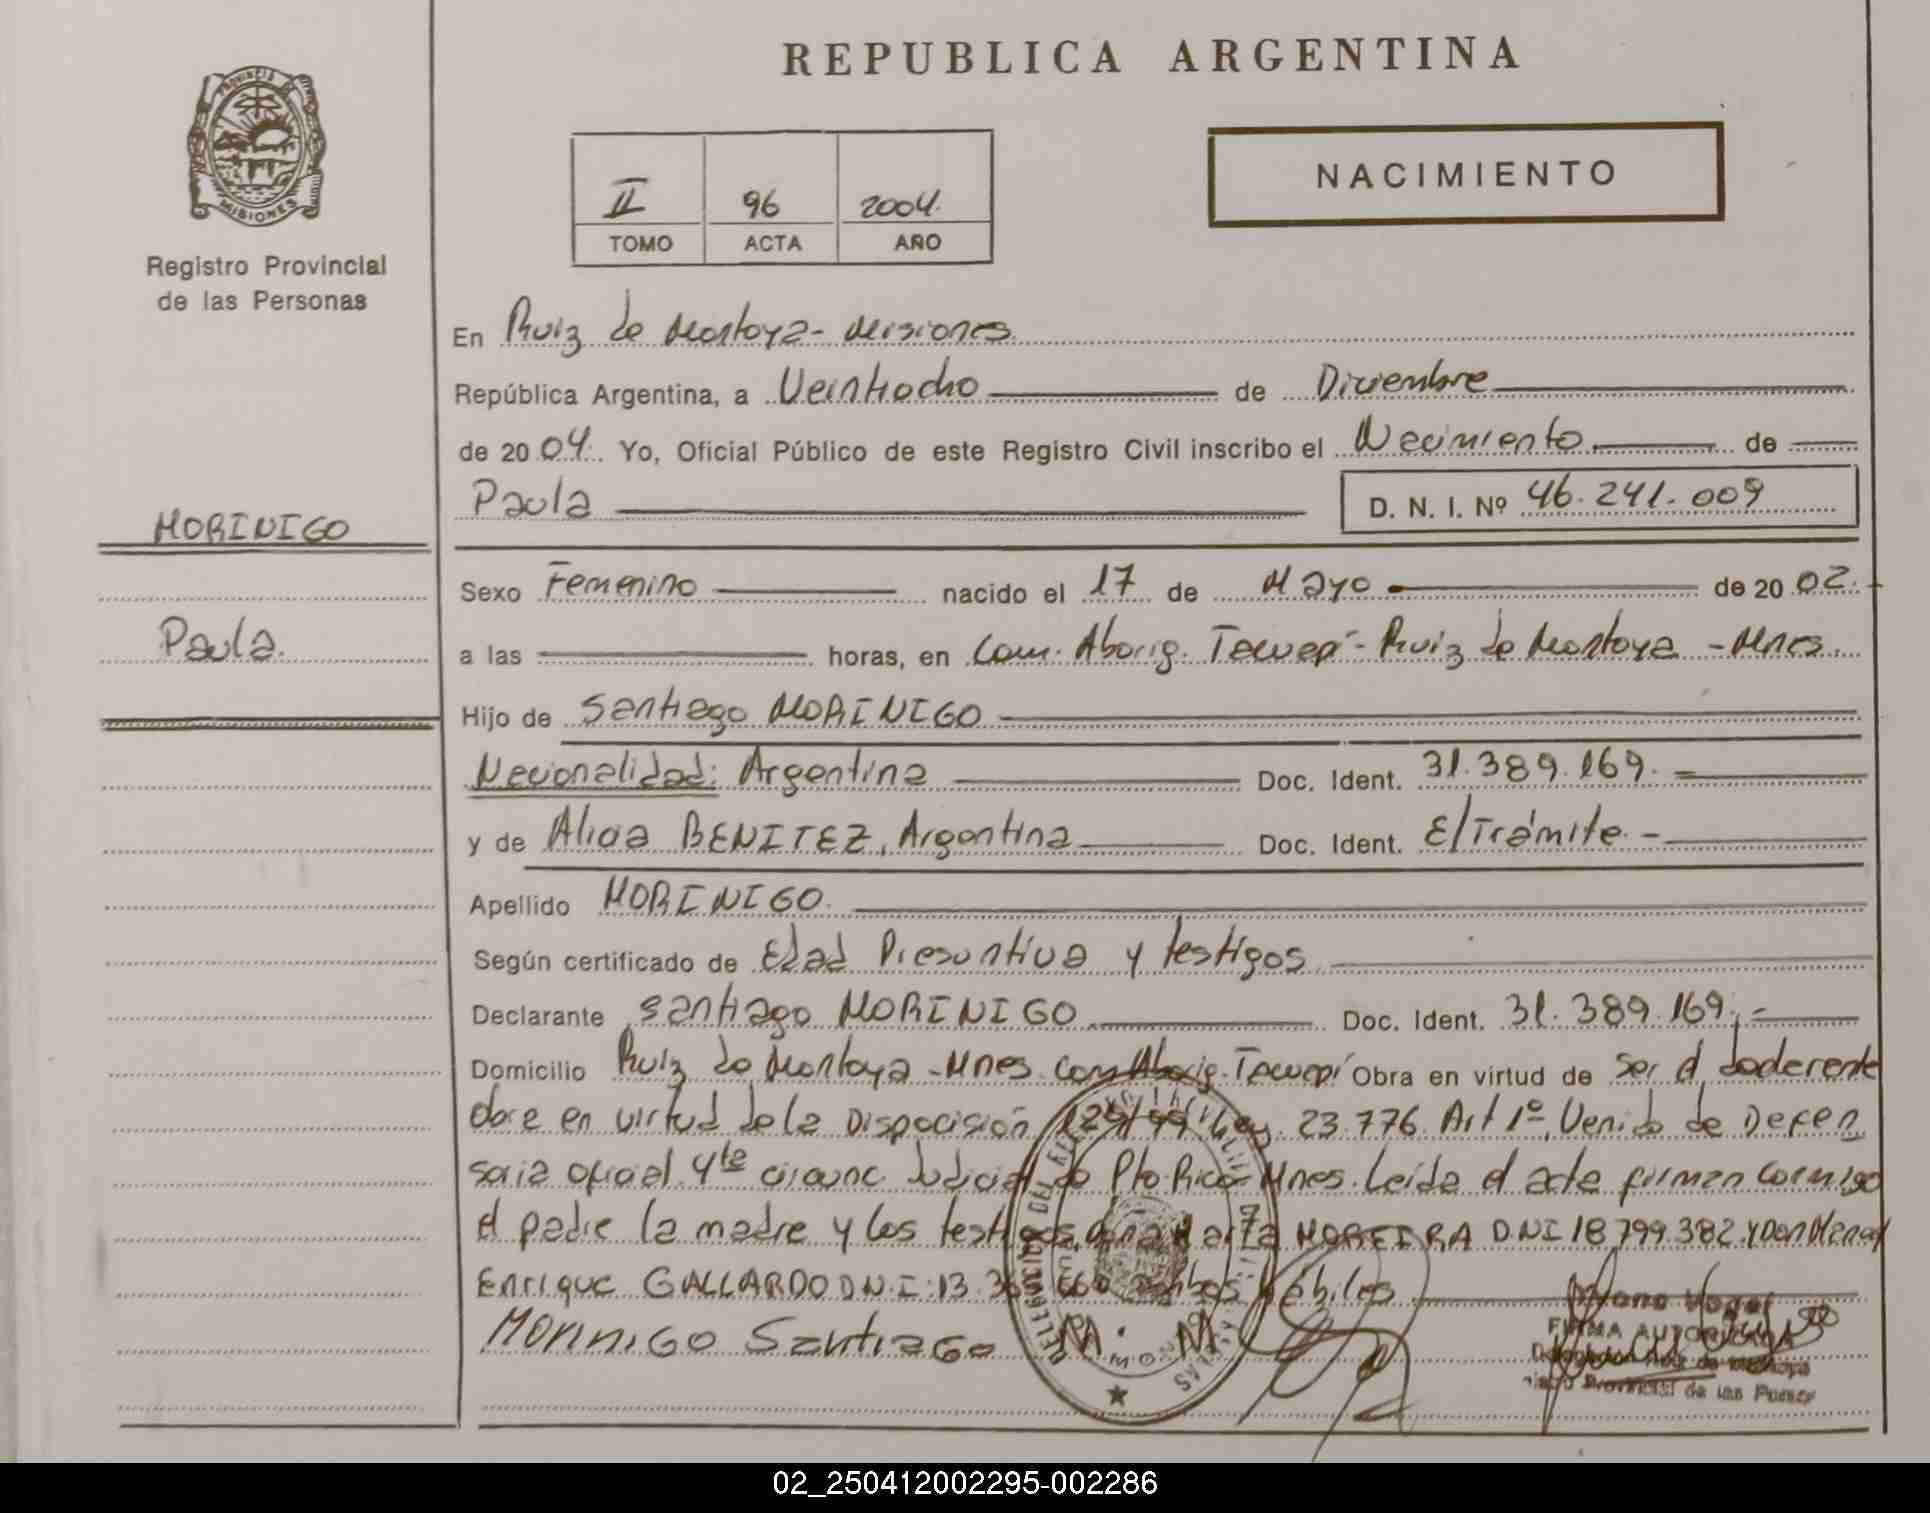 REPUBLICA ARGENTINA
PROVINCIA
MISIONES
Registro Provincial
de las Personas
II 96 2004.
TOMO ACTA AÑO
NACIMIENTO
En Ruiz de Montoya - Misiones
República Argentina, a Veintiocho de Diciembre
de 2004. Yo, Oficial Público de este Registro Civil inscribo el Nacimiento de
Paula D. N. I. Nº 46.241.009
MORINIGO
Paula.
Sexo Femenino nacido el 17 de Mayo de 2002.
a las horas, en Com. Aborig. Tacuapí - Ruiz de Montoya - Mnes.
Hijo de Santiago MORINIGO
Nacionalidad: Argentina Doc. Ident. 31.389.169.
y de Alicia BENITEZ, Argentina Doc. Ident. E/Trámite. -
Apellido MORINIGO.
Según certificado de Edad Presuntiva y testigos
Declarante Santiago MORINIGO Doc. Ident. 31.389.169.-
Domicilio Ruiz de Montoya - Mnes. Com. Aborig. Tacuapí Obra en virtud de ser el
en virtud de la Disposición 129/99 Ley 23.776. Art 1º. Venido de Defen
soria oficial 4ta circunc. Judicial de Pto. Rico - Mnes. Leída el acta firman conmigo
el padre la madre y los testigos MOREIRA DNI 18.799.382. y
Enrique GALLARDO D.N.I: 13. ambos hábiles
MORINIGO Santiago M. M
FIRMA AUTORIZADA
Provincial de las
02_250412002295-002286